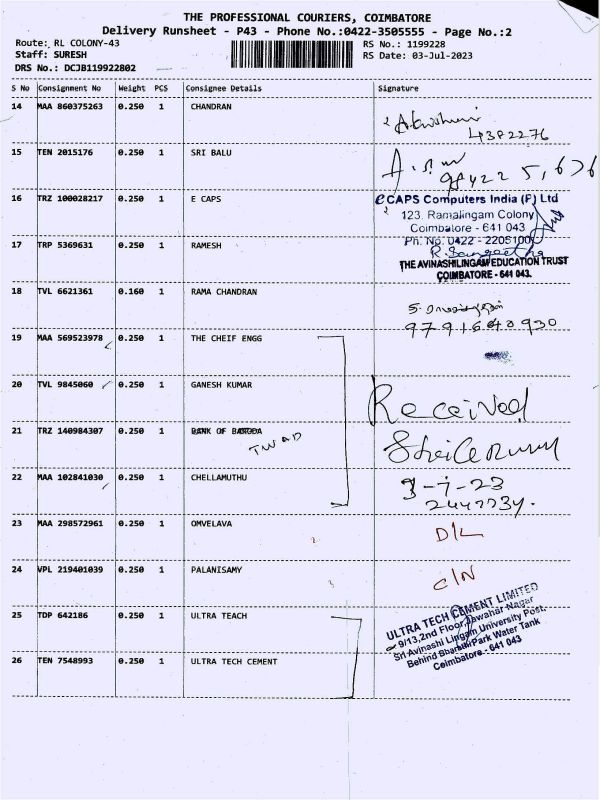 THE PROFESSIONAL COURIERS, COIMBATORE
Delivery Runsheet - P43 - Phone No.:0422-3505555 - Page No.:2
Route: RL COLONY-43 RS No.: 1199228
Staff: SURESH RS Date: 03-Jul-2023
DRS No.: DCJB119922802
S No Consignment No Weight PCS Consignee Details Signature
14 MAA 860375263 0.250 1 CHANDRAN
4382276
15 TEN 2015176 0.250 1 SRI BALU
16 TRZ 100028217 0.250 1 E CAPS
eCAPS Computers India (P) Ltd
123, Ramalingam Colony
Coimbatore - 641 043
Ph: No: 0422 - 2205100
17 TRP 5369631 0.250 1 RAMESH
R. Sangeetha
THE AVINASHILINGAM EDUCATION TRUST
COIMBATORE - 641 043.
18 TVL 6621361 0.160 1 RAMA CHANDRAN
19 MAA 569523978 0.250 1 THE CHEIF ENGG
20 TVL 9845060 0.250 1 GANESH KUMAR
Received
21 TRZ 140984307 0.250 1 BANK OF BARODA
TWAD
22 MAA 102841030 0.250 1 CHELLAMUTHU
3-7-23
23 MAA 298572961 0.250 1 OMVELAVA
D/L
24 VPL 219401039 0.250 1 PALANISAMY
C/N
25 TDP 642186 0.250 1 ULTRA TEACH
ULTRA TECH CEMENT LIMITED
9/13, 2nd Floor, Jawahar Nagar
Sri Avinashi Lingam University Post,
Behind Bharathi Park Water Tank
Coimbatore - 641 043
26 TEN 7548993 0.250 1 ULTRA TECH CEMENT